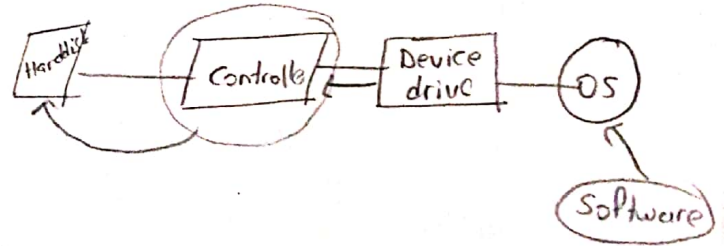 Harddisk
Controlle
Device
drive
OS
Software